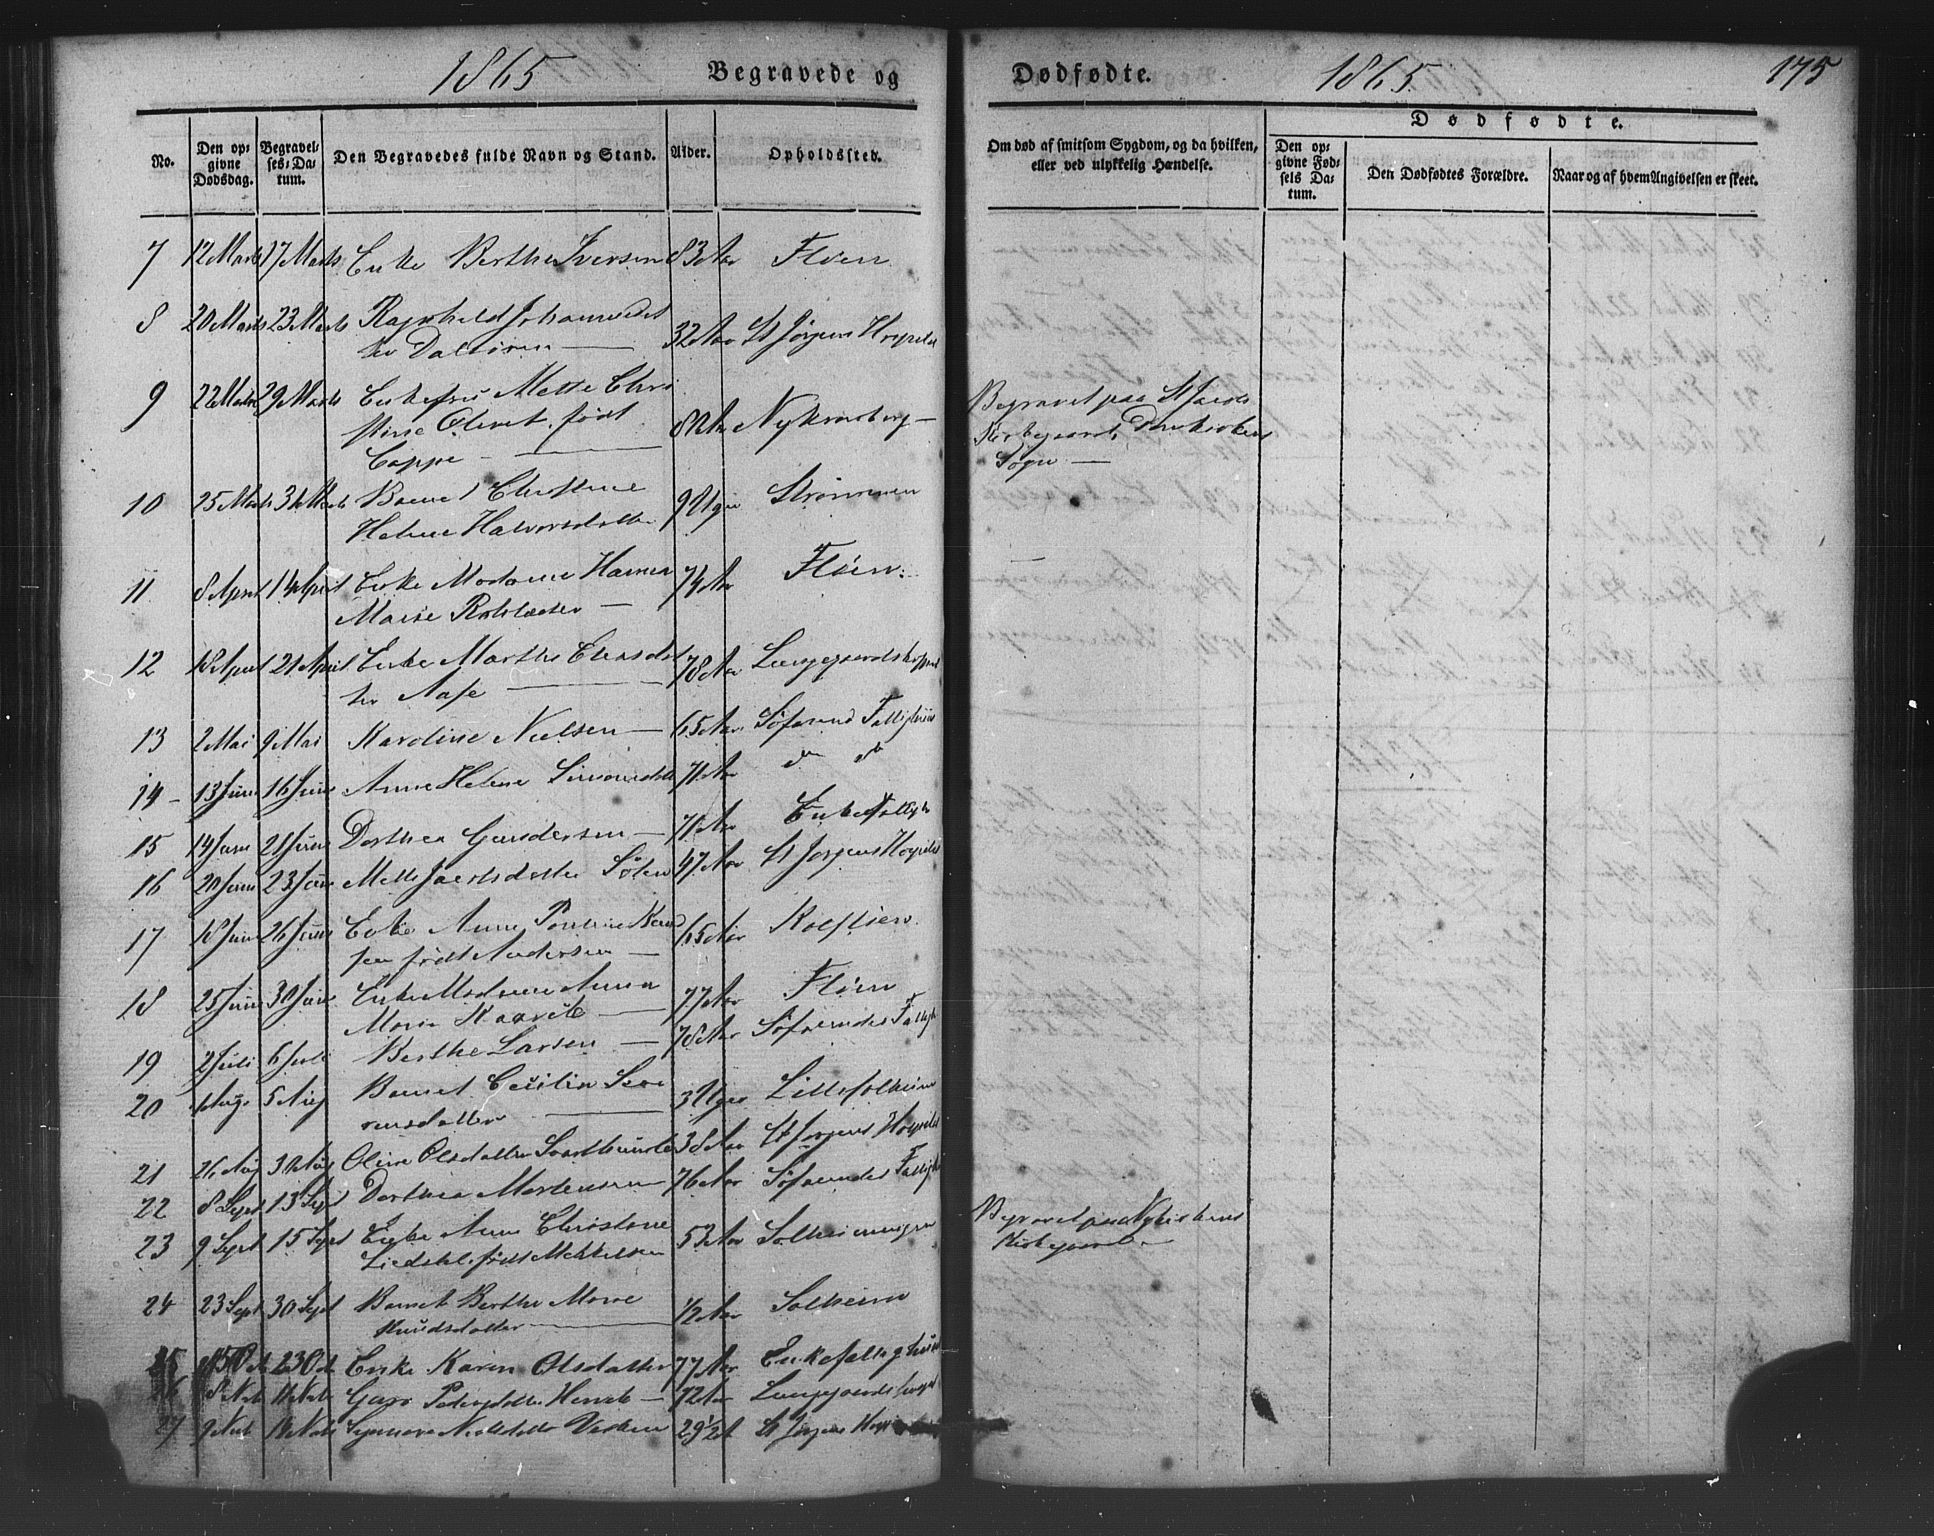 1865 Begravede og Dødfødte. 1865. 175
No. Den opgivne Dødsdag. Begravelses-Datum. Den Begravedes fulde Navn og Stand. Alder. Opholdssted. Om død af smitsom Sygdom, og da hvilken, eller ved ulykkelig Hændelse. Dødfødte. Den opgivne Fødsels Datum. Den Dødfødtes Forældre. Naar og af hvem Angivelsen er skeet.
7 12 Marts 17 Marts Enke Berthe Iversen 83 Aar Fløen
8 20 Marts 23 Marts Ragnhild Johannesdat
ter Dalsøren — 32 Aar St Jørgens Hospital
9 22 Marts 29 Marts Enkefru Mette Chri
stine født 82 Aar Nykronborg — Begravet paa St Jacobs
Coppe — Kirkegaard, Domkirkens
Sogn —
10 25 Marts 31 Marts Barnet Christine
Helene Halvorsdatter 9 Uger Strømmen
11 8 April 14 April Enke Madame Hanna
Marie — 74 Aar Fløen.
12 18 April 21 April Enke Marthe
ter Aase — 78 Aar Lungegaardshospital
13 2 Mai 9 Mai Karoline Nielsen — 65 Aar Søfarend Fattighuus
14 – 13 Juni 16 Juni Anne Helene Simonsdatter 71 Aar do do
15 14 Juni 21 Juni Dorthea Gundersen — 71 Aar Enkefattigh
16 20 Juni 23 Juni Mette Søten 47 Aar St Jørgens Hospital
17 18 Juni 26 Juni Enke Anne Pauline Knud
sen født Andersen — 65 Aar Kalfaren
18 25 Juni 30 Juni Enke Madame Anna
Marie — 77 Aar Fløen
19 2 Juli 6 Juli Berthe Larsen — 78 Aar Søfarendes Fattigh
20 1 Aug. 5 Aug Barnet Cecilia
datter — 3 Uger Lillesolheim
21 26 Aug 31 Aug Oline Olsdatter 38 Aar St Jørgens Hospital
22 8 Sept 13 Sept Dorthea Mortensen 76 Aar Søfarendes Fattigh
23 9 Sept 15 Sept Enke Anne Christine
født Mikkelsen 53 Aar Solheimsvigen Begravet paa Nykirkens
Kirkegaard —
24 23 Sept 30 Sept Barnet Berthe Marie
Knudsdatter — 1/2 Aar Solheim
25 15 Oct 23 Oct Enke Karen Olsdatter 77 Aar Enkefattighuus
26 8 Nov 11 Nov Guro Pedersdatter — 72 Aar Lungegaardshospit
27 9 Nov 14 Nov Synneve 29 1/2 St Jørgens Hosp